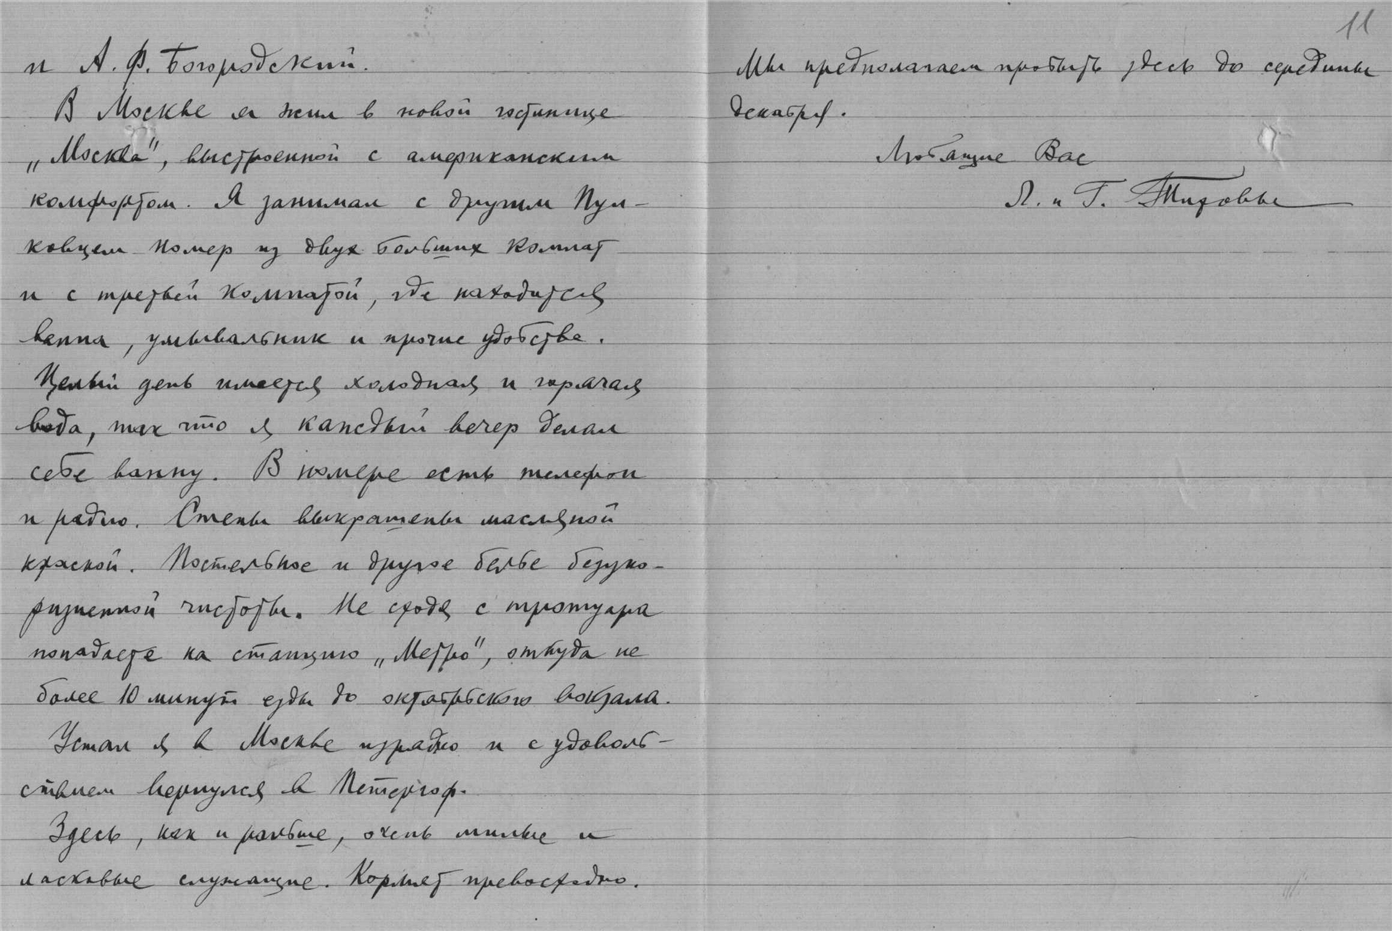 и А. Ф. Богородский.
В Москве я жил в новой гостинице
„Москва", выстроенной с американским
комфортом. Я занимал с другим Пул-
ковцем номер из двух больших комнат
и с третьей комнатой, где находится
ванна, умывальник и прочие удобства.
Целый день имеется холодная и горячая
вода, так что я каждый вечер делал
себе ванну. В номере есть телефон
и радио. Стены выкрашены масляной
краской. Постельное и другое белье безуко-
ризненной чистоты. Не сходя с тротуара
попадаете на станцию „Метро", откуда не
более 10 минут езды до октябрьского вокзала.
Устал я в Москве изрядно и с удоволь-
ствием вернулся в Петергоф.
Здесь, как и раньше, очень милые и
ласковые служащие. Кормят превосходно.
11
Мы предполагаем пробыть здесь до середины
декабря.
Любящие Вас
Г. Тиховы